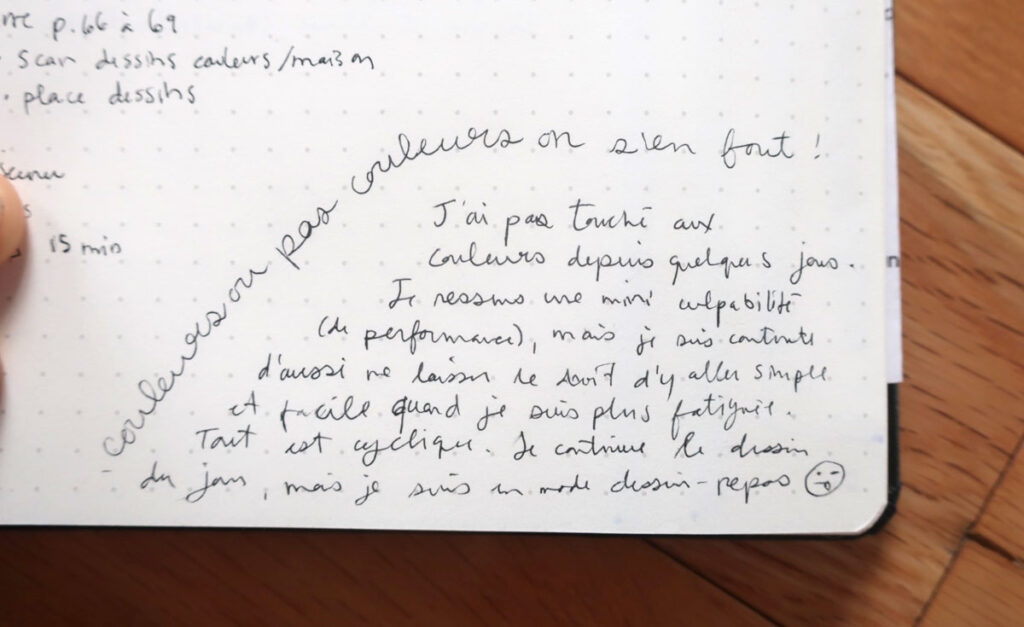 p.66 à 69
· scan dessins couleurs/maison
· place dessins
15 min
couleurs ou pas couleurs on s'en fout !
J'ai pas touché aux
couleurs depuis quelques jours.
Je ressens une mini culpabilité
(de performance), mais je suis contente
d'aussi me laisser le droit d'y aller simple
et facile quand je suis plus fatiguée.
Tout est cyclique. Je continue le dessin
du jour, mais je suis en mode dessin-repos